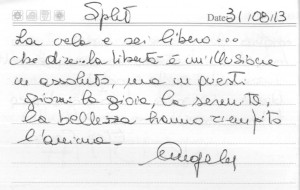 Split
Date 31/08/13
La vela e sei libero...
che dire... la libertà è un'illusione
in assoluto, ma in questi
giorni la gioia, la serenità,
la bellezza hanno riempito
l'anima -
Angela